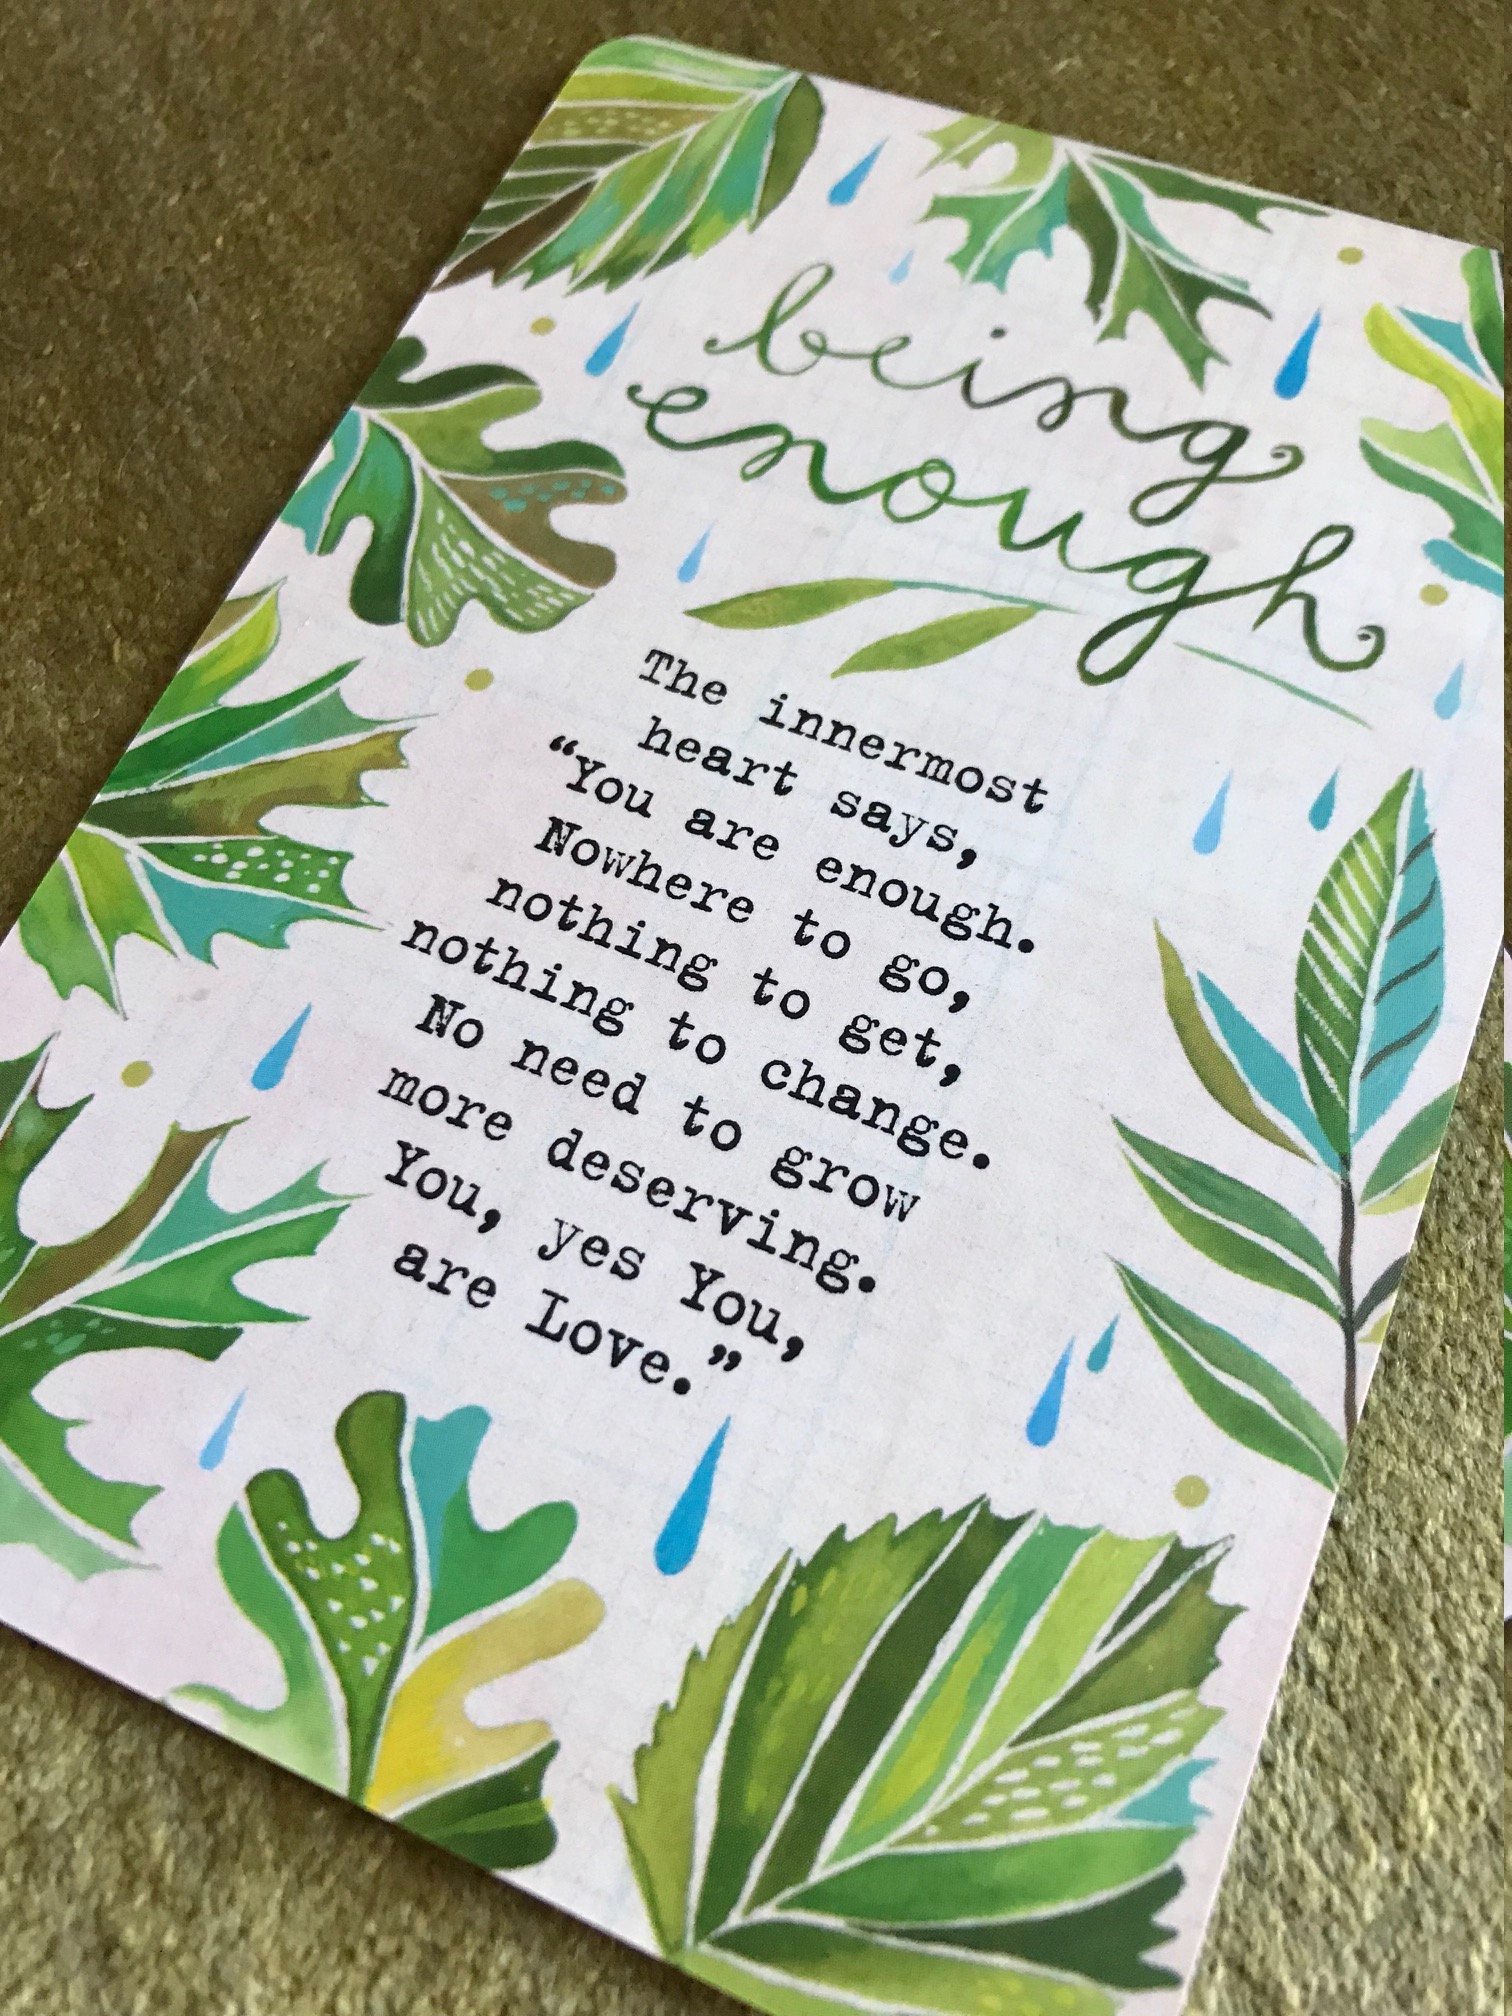 being
enough
The innermost
heart says,
“You are enough.
Nowhere to go,
nothing to get,
nothing to change.
No need to grow
more deserving.
You, yes You,
are Love.”